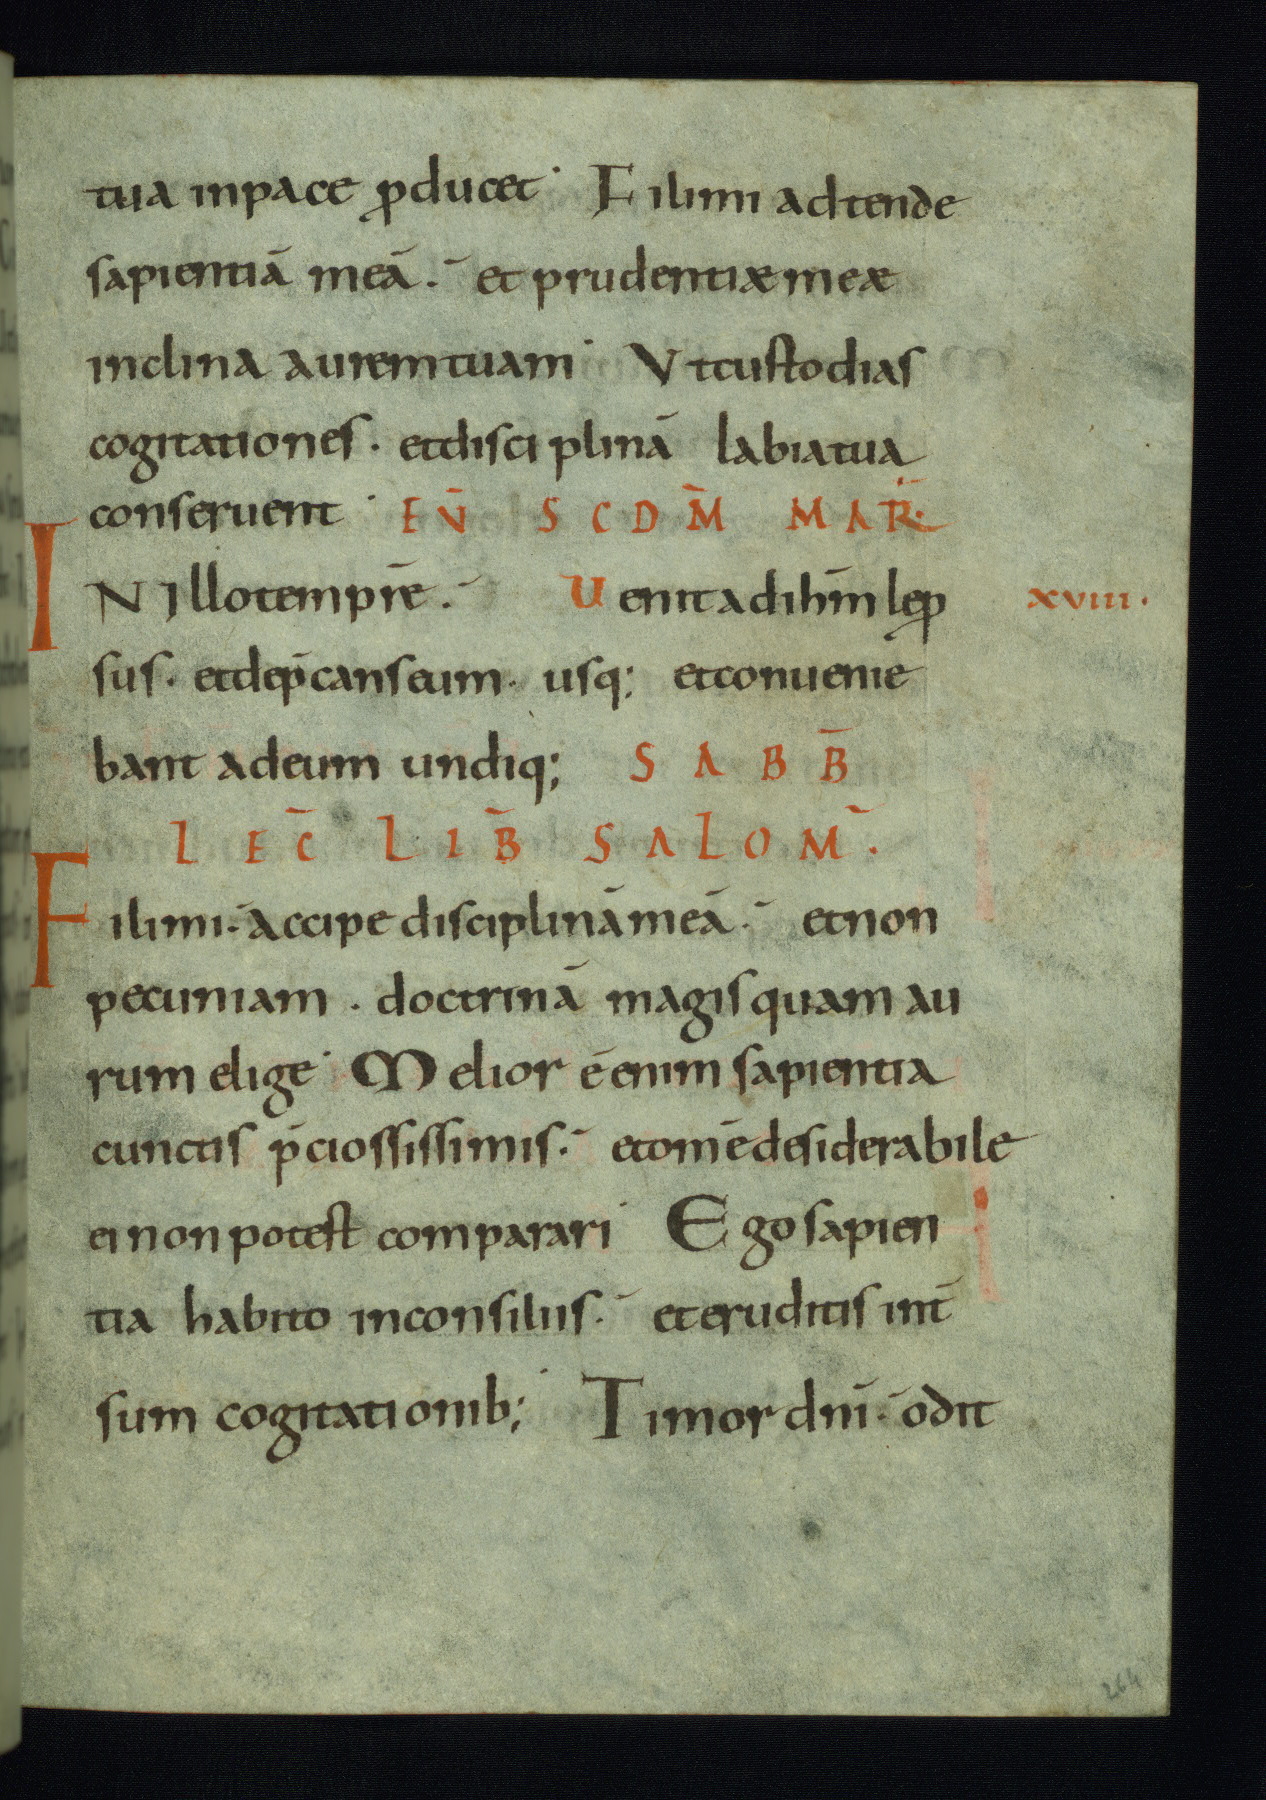 tua inpace ꝓducet· Filimi adtende
sapientiā meā· et prudentiæ meæ
inclina auremtuam· Vtcustodias
cogitationes· etdisciplinā labiatua
conseruent· EṼ SCDM̄ MAR̄·
IN Illotempr̄e· Uenit adihm̄ lep̄ xviii·
sus· etdep̄canseum· usq; etconueniē
bant adeum undiq; SABB̄
LEC̄ LIB̄ SALOM̄·
Filimi· accipe disciplinā meā· etnon
pecuniam· doctrinā magisquam au
rum elige· Melior ē enim sapientia
cunctis p̄ciossissimis· etom̄e desiderabile
ei non potest comparari· Ego sapien
tia habito inconsiliis· et eruditis int̄
sum cogitationib; Timor dn̄i· odit
264